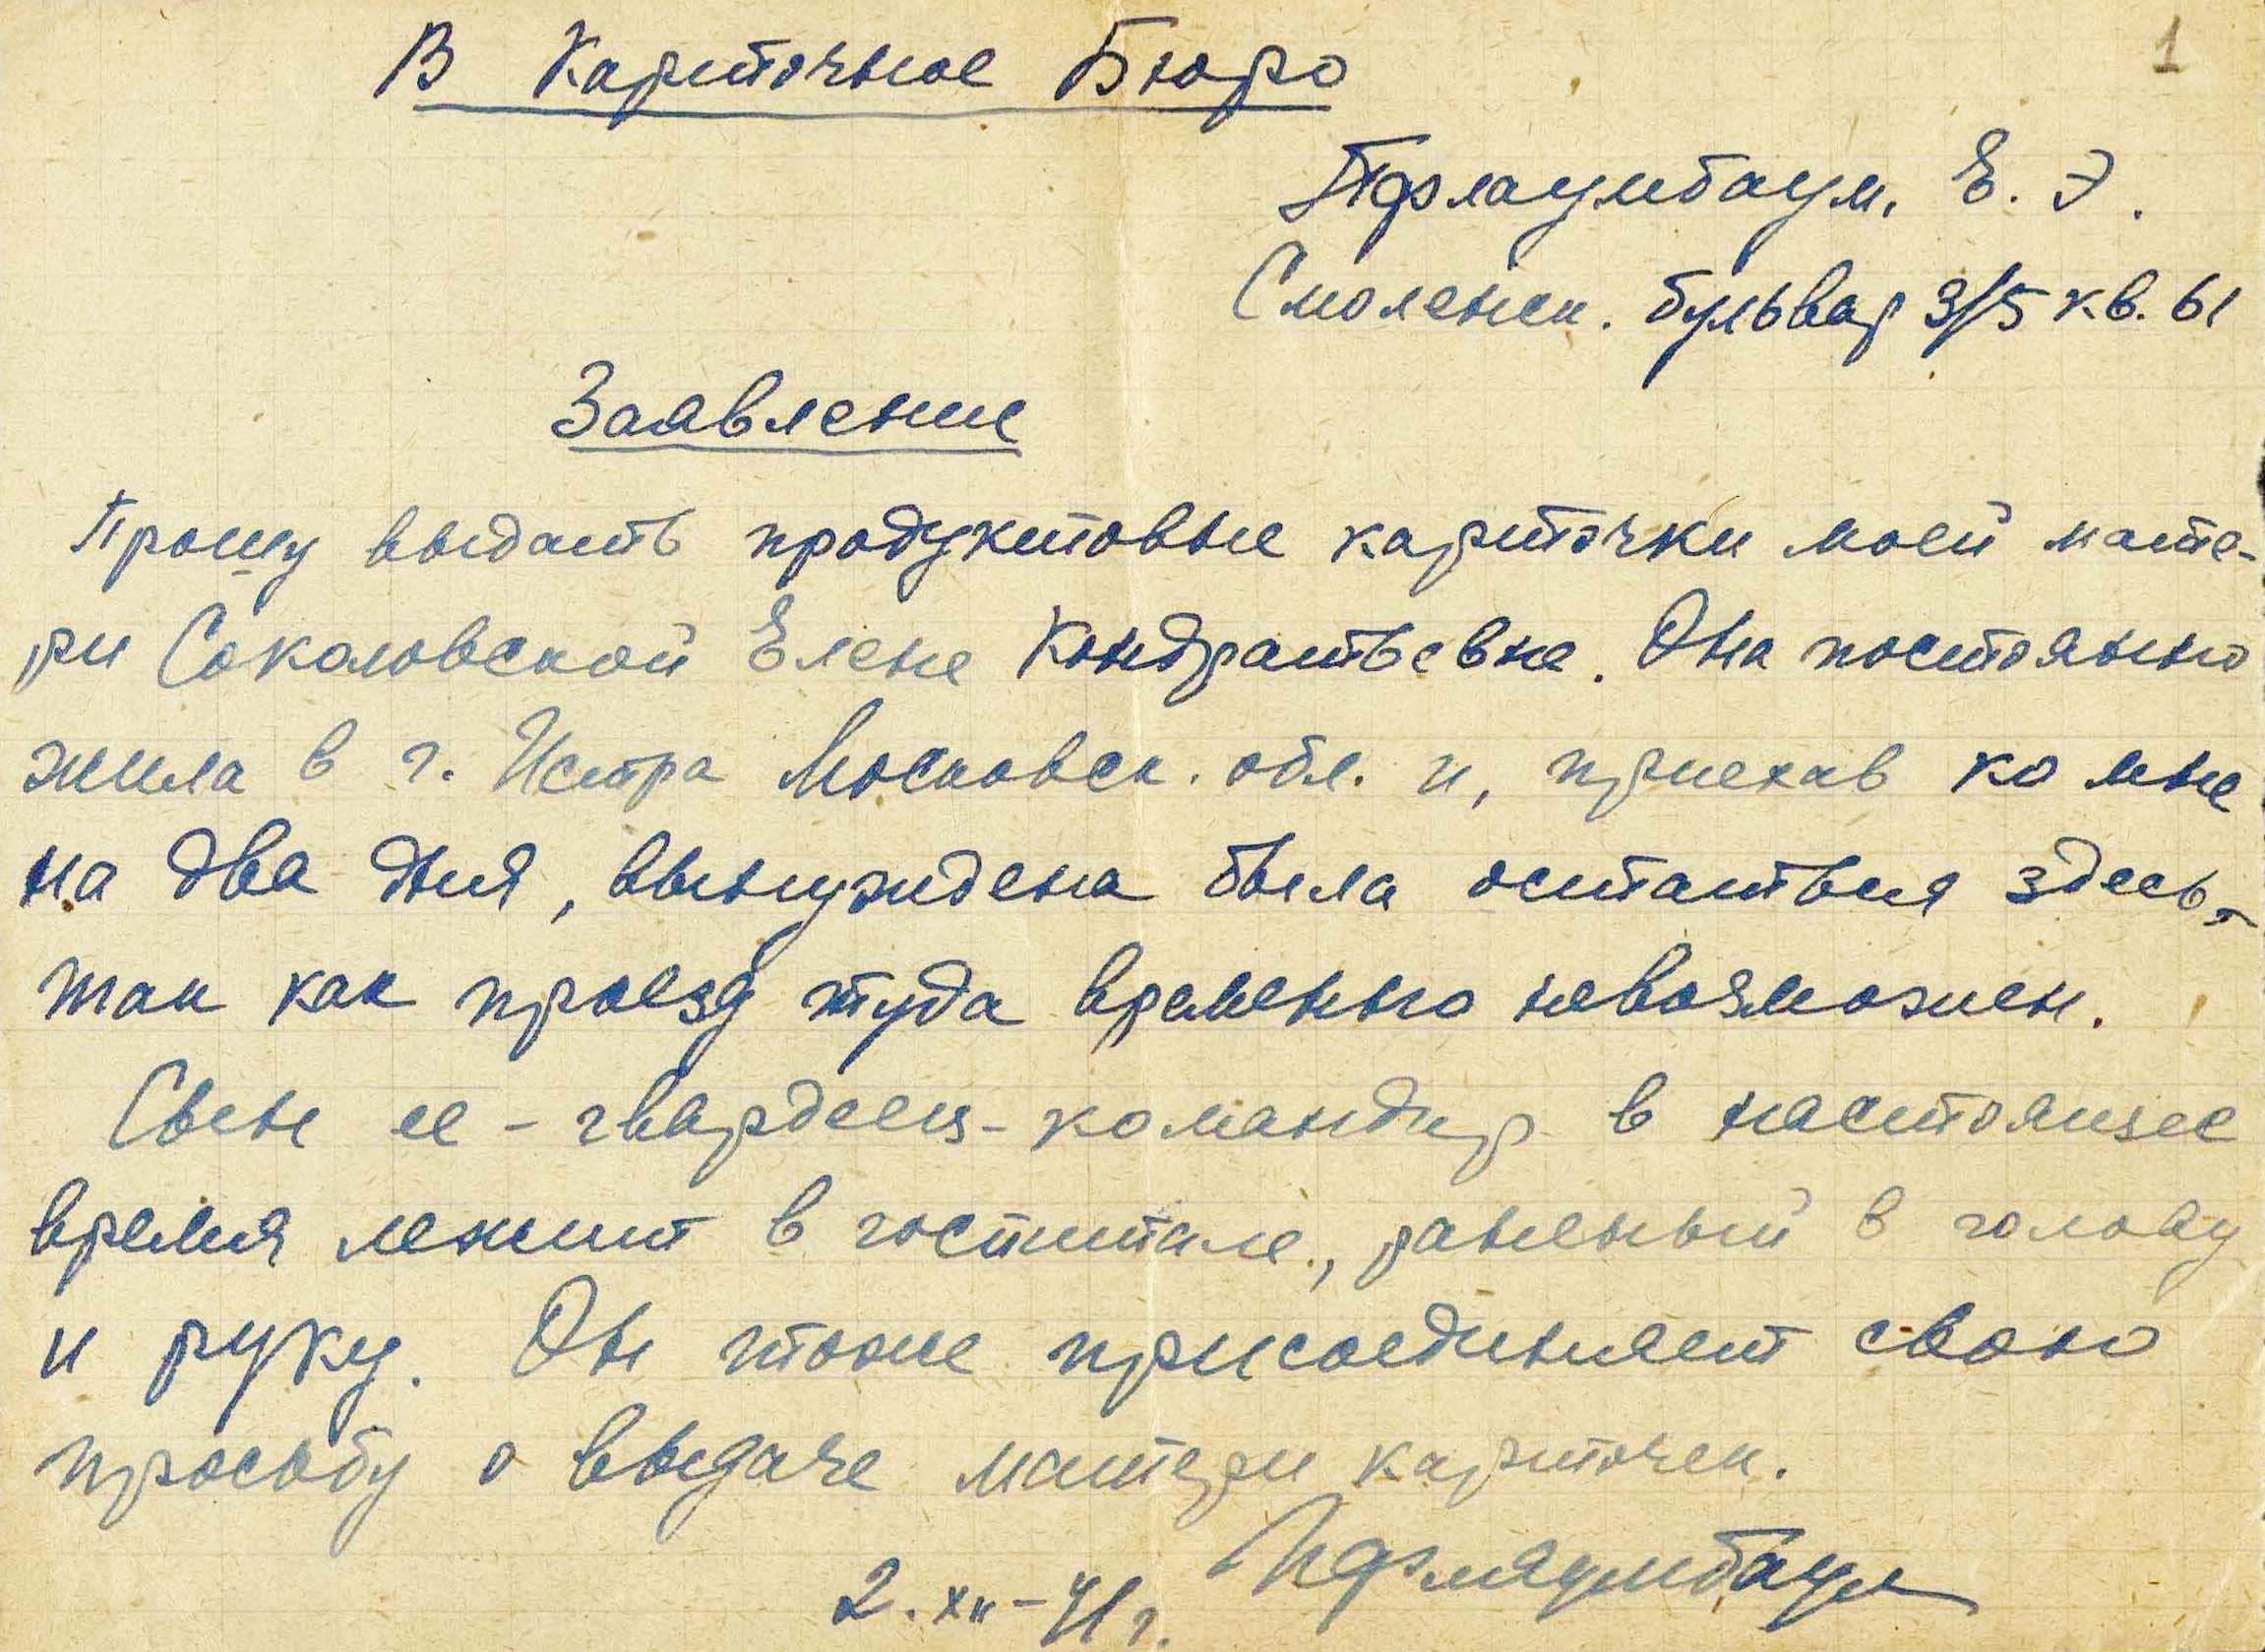 1
В Карточное Бюро
Пфлаумбаум. Е. Э.
Смоленск. бульвар 3/5 кв. 61
Заявление
Прошу выдать продуктовые карточки моей мате-
ри Соколовской Елене Кондратьевне. Она постоянно
жила в г. Истра Московск. обл. и, приехав ко мне
на два дня, вынуждена была остаться здесь,
так как проезд туда временно невозможен.
Сын ее - гвардеец-командир в настоящее
время лежит в госпитале, раненый в голову
и руку. Он тоже присоединяет свою
просьбу о выдаче матери карточек.
2. XII - 41 г. Пфлаумбаум